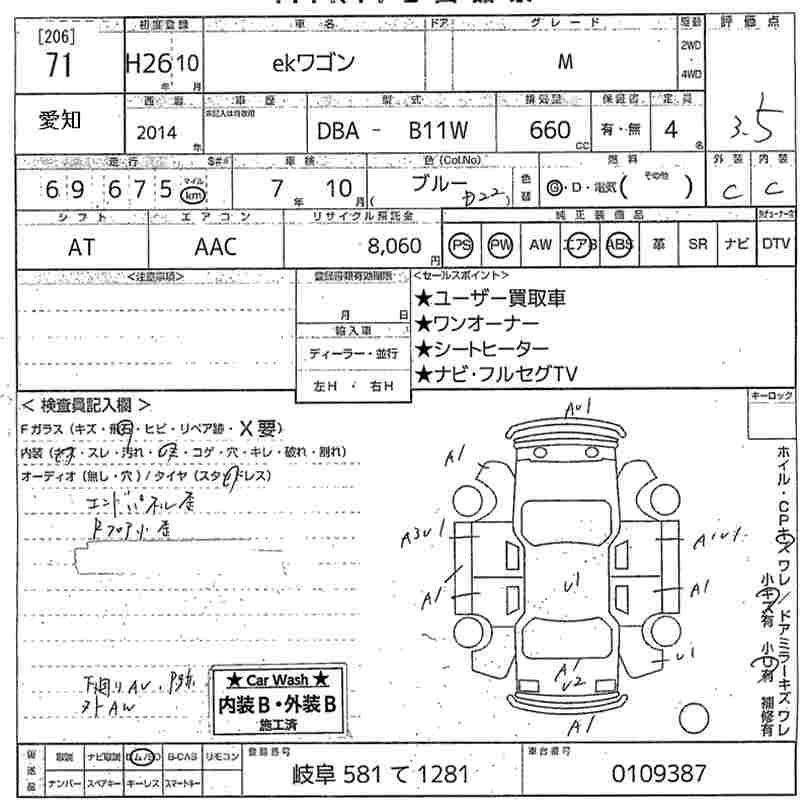 [206]
71
初度登録
車名
ドア
グレード
駆動
評価点
H26 10
年 月
ekワゴン
M
2WD
・
4WD
愛知
西暦
車歴
未記入は自家用
型式
排気量
保証書
定員
3.5
2014 年
DBA - B11W
660 CC
有・無
4 名
走行
車検
色(Col.No)
燃料
外装
内装
69675
マイル
km
7 年 10 月
ブルー
( D22 )
色替
G・D・電気( その他 )
C
C
シフト
エアコン
リサイクル預託金
純正装備品
AT
AAC
8,060 円
PS
PW
AW
エアB
ABS
革
SR
ナビ
DTV
<注意事項>
登録書類有効期限
月 日
輸入車
ディーラー・並行
左H ・ 右H
<セールスポイント>
★ユーザー買取車
★ワンオーナー
★シートヒーター
★ナビ・フルセグTV
< 検査員記入欄 >
キーロック
Fガラス(キズ・飛石・ヒビ・リペア跡・X要)
内装(キズ・スレ・汚れ・・コゲ・穴・キレ・破れ・割れ)
オーディオ(無し・穴)/タイヤ(スタッドレス)
エンドパネル歪
RフロアW歪
AU1
A1
A3U1
A1U1
A1
U1
A1
U1
A1
U2
A1
ホイル・CPキズワレ/ドアミラーキズワレ
小キズ有 小凹有 補修有
下廻りAU、
外AW
★ Car Wash ★
内装B・外装B
施工済
後送品
取説
ナビ取説
B-CAS
リモコン
ナンバー
スペアキー
キーレス
スマートキー
登録番号
岐阜 581 て 1281
車台番号
0109387